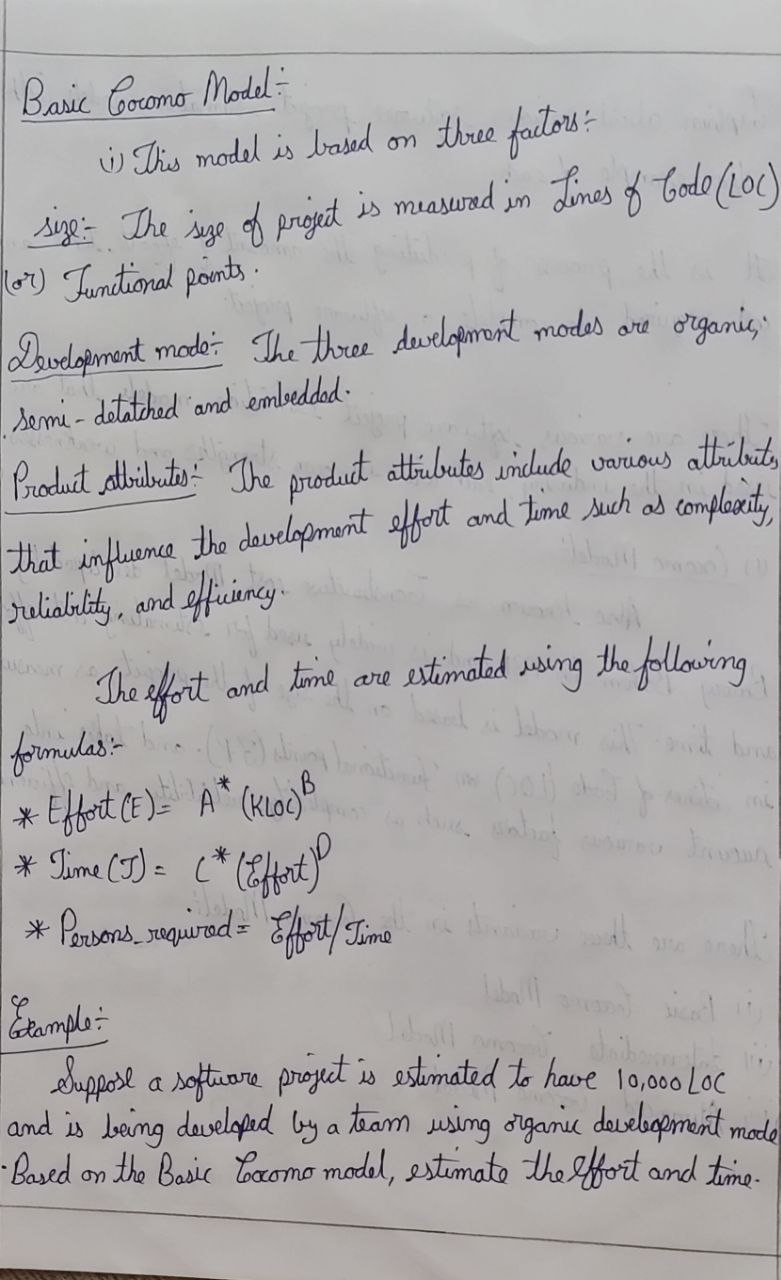 Basic Cocomo Model:-
(i) This model is based on three factors:-
size:- The size of project is measured in Lines of Code (LOC)
(or) Functional points.
Development mode:- The three development modes are organic,
semi-detatched and embedded.
Product attributes:- The product attributes include various attributes
that influence the development effort and time such as complexity,
reliability, and efficiency.
The effort and time are estimated using the following
formulas:-
* Effort (E) = A* (KLOC)^B
* Time (T) = C* (Effort)^D
* Persons_required = Effort/Time
Example:-
Suppose a software project is estimated to have 10,000 LOC
and is being developed by a team using organic development mode
. Based on the Basic Cocomo model, estimate the effort and time.